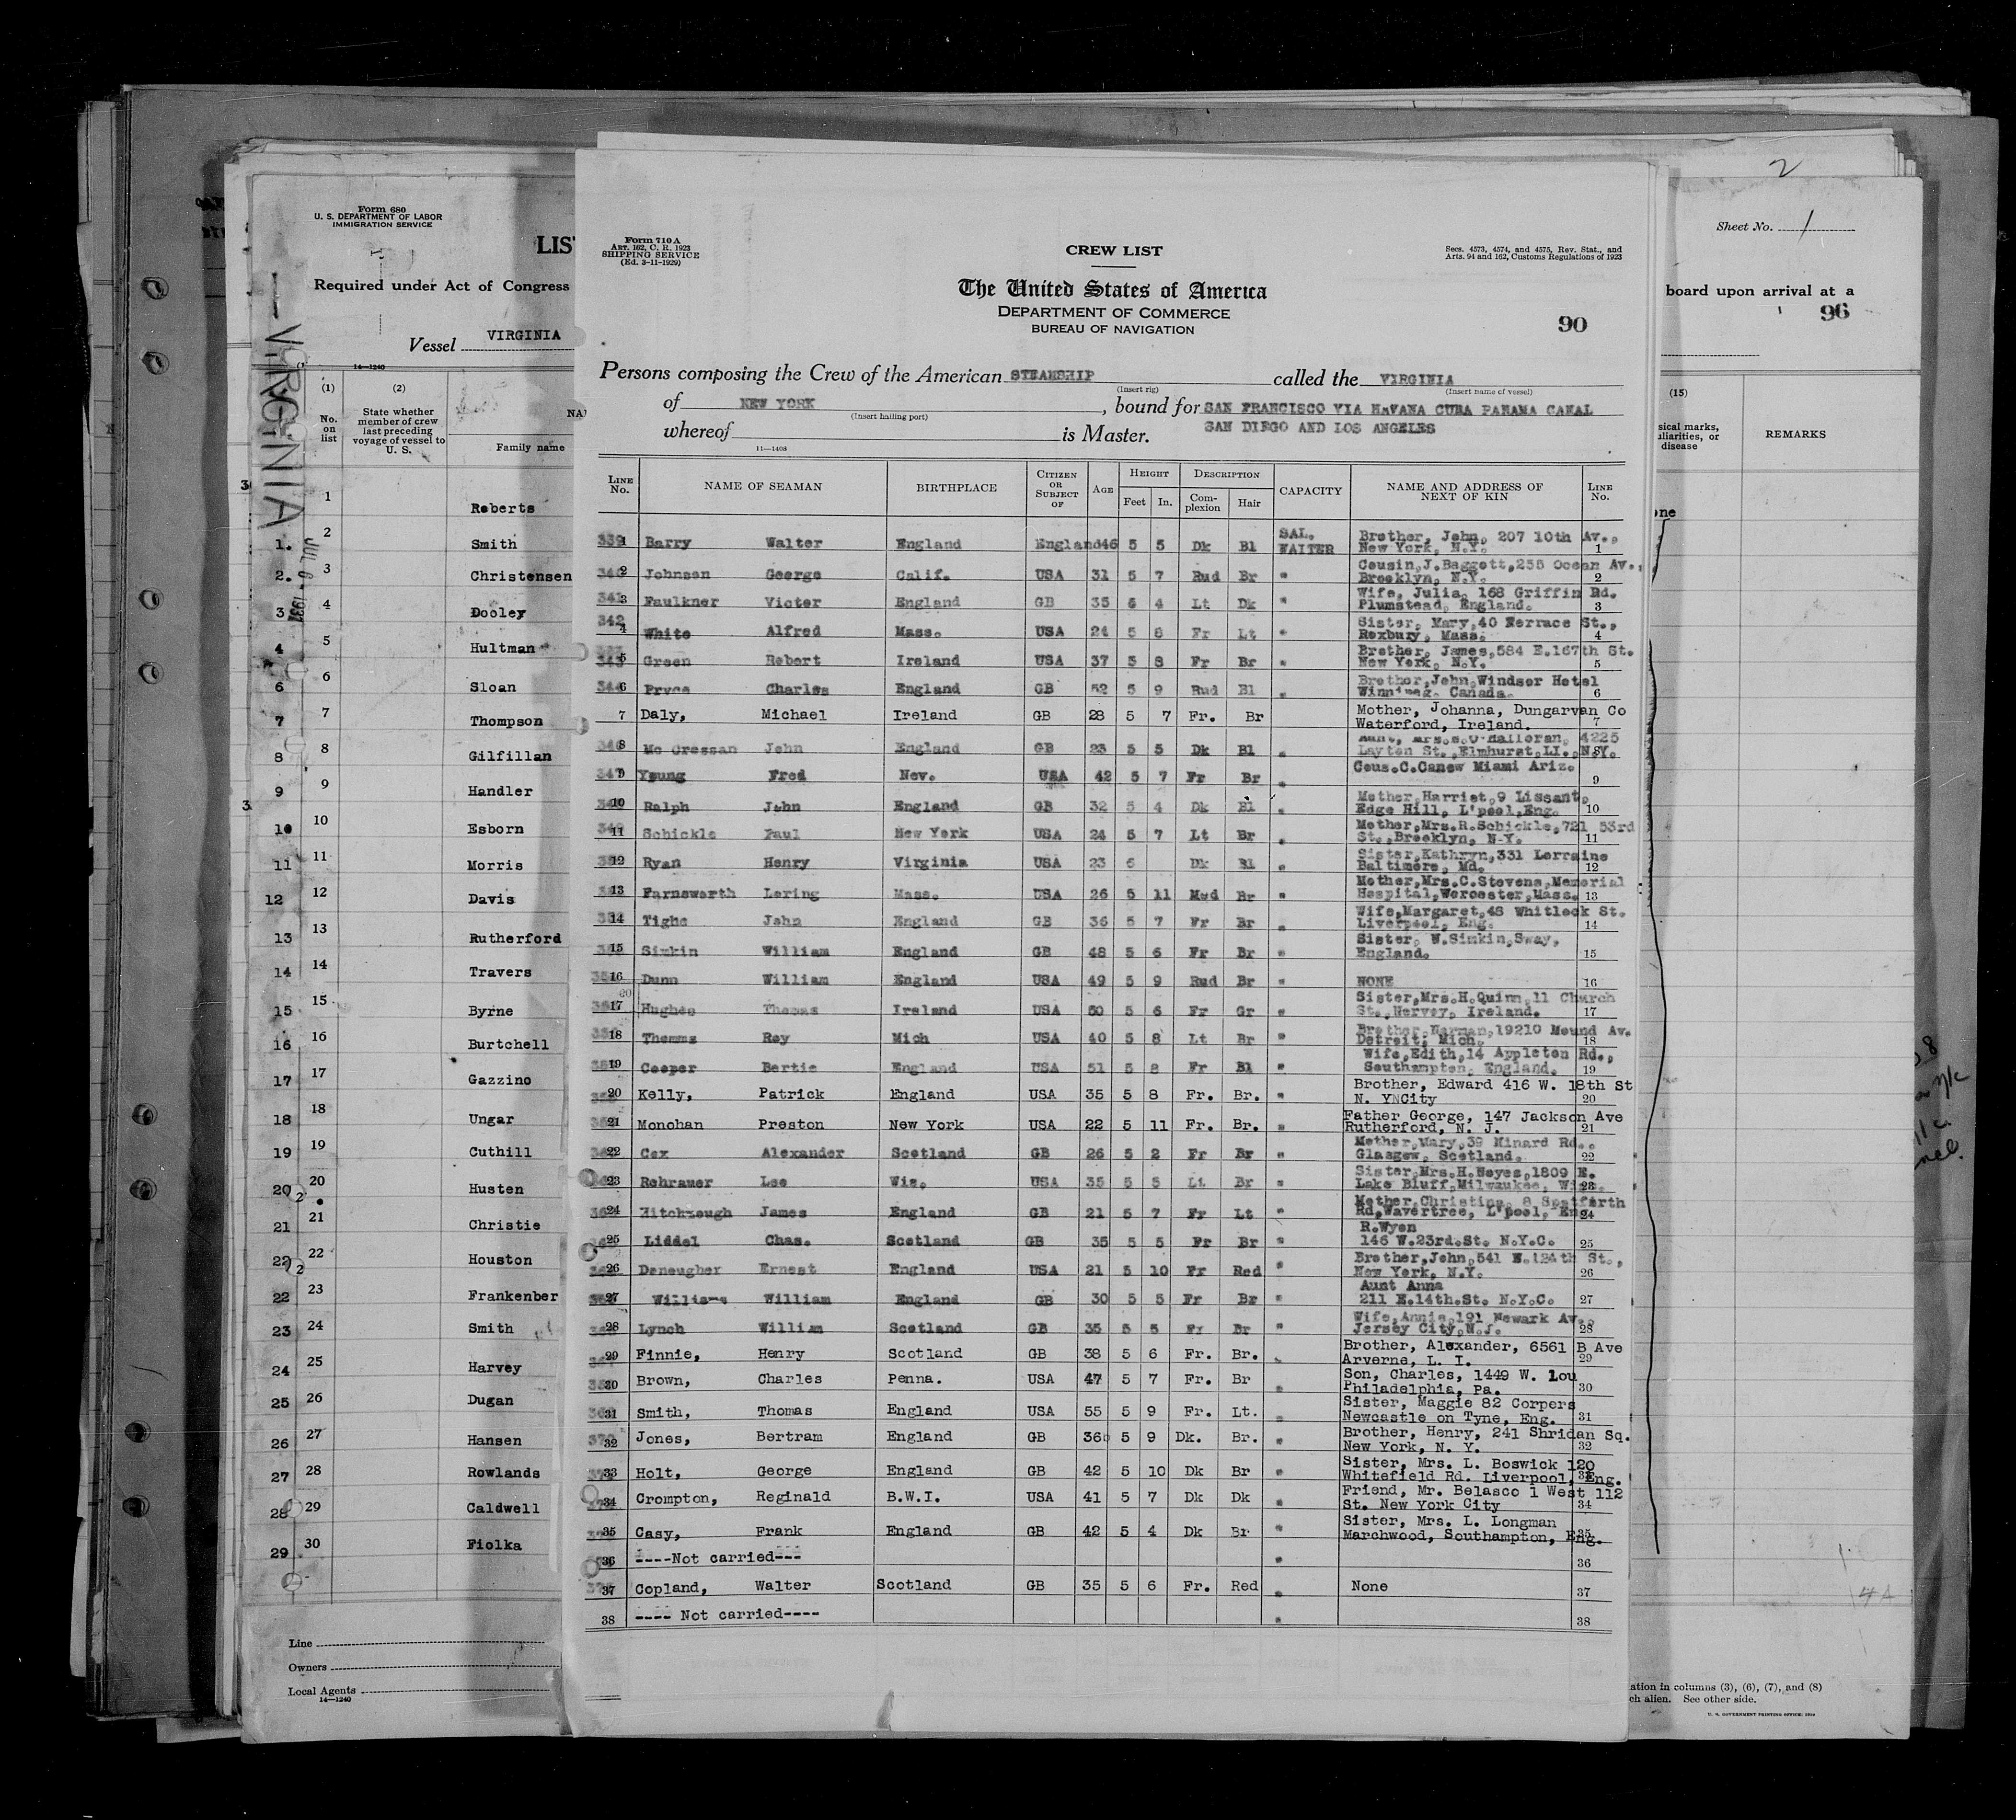 Form 680
U. S. DEPARTMENT OF LABOR
IMMIGRATION SERVICE
LIS
Required under Act of Congress
Vessel VIRGINIA
14—1240
VIRGINIA
(1) (2)
No. on list
State whether member of crew last preceding voyage of vessel to U. S.
NA
Family name
1 Roberts
1. 2 Smith
2. 3 Christensen
3 4 Dooley
4 5 Hultman
6 6 Sloan
7 7 Thompson
8 8 Gilfillan
9 9 Handler
10 10 Esborn
11 11 Morris
12 12 Davis
13 13 Rutherford
14 14 Travers
15 15 Byrne
16 16 Burtchell
17 17 Gazzino
18 18 Ungar
19 19 Cuthill
20 20 Husten
21 21 Christie
22 22 Houston
22 23 Frankenber
23 24 Smith
24 25 Harvey
25 26 Dugan
26 27 Hansen
27 28 Rowlands
28 29 Caldwell
29 30 Fiolka
Line
Owners
Local Agents
14—1240
Form 710 A
ART. 162, C. R. 1923
SHIPPING SERVICE
(Ed. 3-11-1929)
CREW LIST
Secs. 4573, 4574, and 4575, Rev. Stat., and
Arts. 94 and 162, Customs Regulations of 1923
The United States of America
DEPARTMENT OF COMMERCE
BUREAU OF NAVIGATION
90
Persons composing the Crew of the American STEAMSHIP called the VIRGINIA
(Insert rig) (Insert name of vessel)
of NEW YORK, bound for SAN FRANCISCO VIA HAVANA CUBA PANAMA CANAL
(Insert hailing port)
SAN DIEGO AND LOS ANGELES
whereof is Master.
11—1408
LINE No. NAME OF SEAMAN BIRTHPLACE CITIZEN OR SUBJECT OF AGE HEIGHT Feet In. DESCRIPTION Complexion Hair CAPACITY NAME AND ADDRESS OF NEXT OF KIN LINE No.
1 Barry Walter England England 46 5 5 Dk Bl SAL. WAITER Brother, John, 207 10th Av., New York, N.Y. 1
2 Johnson George Calif. USA 31 5 7 Rud Br " Cousin, J. Baggett, 255 Ocean Av., Brooklyn, N.Y. 2
3 Faulkner Victor England GB 35 6 4 Lt Dk " Wife, Julia, 168 Griffin Rd. Plumstead, England. 3
4 White Alfred Mass. USA 24 5 8 Fr Lt " Sister, Mary, 40 Terrace St., Roxbury, Mass. 4
5 Green Robert Ireland USA 37 5 8 Fr Br " Brother, James, 584 E.167th St. New York, N.Y. 5
6 Pryce Charles England GB 52 5 9 Rud Bl " Brother, John, Windsor Hotel Winnipeg. Canada. 6
7 Daly, Michael Ireland GB 28 5 7 Fr. Br Mother, Johanna, Dungarvan Co Waterford, Ireland. 7
8 Mc Crossan John England GB 23 5 5 Dk Bl " Aunt, Mrs. O'Halloran, 4225 Layton St., Elmhurst, LI., N.Y. 8
9 Young Fred Nev. USA 42 5 7 Fr Br " Cous.C.Canow Miami Ariz. 9
10 Ralph John England GB 32 5 4 Dk Bl " Mother, Harriet, 9 Lissant, Edge Hill, L'pool, Eng. 10
11 Schickle Paul New York USA 24 5 7 Lt Br " Mother, Mrs.R.Schickle, 721 53rd St., Brooklyn, N.Y. 11
12 Ryan Henry Virginia USA 23 6 Dk Bl " Sister, Kathryn, 331 Lorraine Baltimore, Md. 12
13 Farnsworth Loring Mass. USA 26 5 11 Med Br " Mother, Mrs.C.Stevens, Memorial Hospital, Worcester, Mass. 13
14 Tighe John England GB 36 5 7 Fr Br " Wife, Margaret, 48 Whitlock St. Liverpool, Eng. 14
15 Simkin William England GB 48 5 6 Fr Br " Sister, W.Simkin, Sway, England. 15
16 Dunn William England USA 49 5 9 Rud Br " NONE 16
17 Hughes Thomas Ireland USA 50 5 6 Fr Gr " Sister, Mrs.H.Quinn, 11 Church St., Nervey, Ireland. 17
18 Thomms Roy Mich USA 40 5 8 Lt Br " Brother, Norman, 19210 Mound Av. Detroit, Mich. 18
19 Cooper Bertie England USA 51 5 8 Fr Bl " Wife, Edith, 14 Appleton Rd., Southampton, England. 19
20 Kelly, Patrick England USA 35 5 8 Fr. Br. " Brother, Edward 416 W. 18th St N. YNCity 20
21 Monohan Preston New York USA 22 5 11 Fr. Br. " Father George, 147 Jackson Ave Rutherford, N. J. 21
22 Cox Alexander Scotland GB 26 5 2 Fr Br " Mother, Mary, 39 Minard Rd., Glasgow, Scotland. 22
23 Rohrauer Leo Wis. USA 35 5 5 Lt Br " Sister, Mrs.H.Noyes, 1809 E. Lake Bluff, Milwaukee, Wis. 23
24 Hitchzough James England GB 21 5 7 Fr Lt " Mother, Christina, 8 Rd, Wavertree, L'pool, Eng 24
25 Liddel Chas. Scotland GB 35 5 5 Fr Br " R.Wyen 146 W.23rd.St. N.Y.C. 25
26 Doneugher Ernest England USA 21 5 10 Fr Red " Brother, John, 541 W.124th St., New York, N.Y. 26
27 Williams William England GB 30 5 5 Fr Br " Aunt Anna 211 E.14th.St. N.Y.C. 27
28 Lynch William Scotland GB 35 5 5 Fr Br " Wife, Annie, 191 Newark Av., Jersey City, N.J. 28
29 Finnie, Henry Scotland GB 38 5 6 Fr. Br. " Brother, Alexander, 6561 B Ave Arverne, L. I. 29
30 Brown, Charles Penna. USA 47 5 7 Fr. Br " Son, Charles, 1449 W. Lou Philadelphia, Pa. 30
31 Smith, Thomas England USA 55 5 9 Fr. Lt. " Sister, Maggie 82 Corpers Newcastle on Tyne, Eng. 31
32 Jones, Bertram England GB 36 5 9 Dk. Br. " Brother, Henry, 241 Shridan Sq. New York, N. Y. 32
33 Holt, George England GB 42 5 10 Dk Br " Sister, Mrs. L. Boswick 120 Whitefield Rd. Liverpool, Eng. 33
34 Crompton, Reginald B.W.I. USA 41 5 7 Dk Dk " Friend, Mr. Belasco 1 West 112 St. New York City 34
35 Casy, Frank England GB 42 5 4 Dk Br " Sister, Mrs. L. Longman Marchwood, Southampton, Eng. 35
36 ----Not carried--- " 36
37 Copland, Walter Scotland GB 35 5 6 Fr. Red " None 37
38 ---- Not carried---- " 38
2
Sheet No. 1
board upon arrival at a
96
(15)
sical marks,
uliarities, or
disease
REMARKS
one
4A
ation in columns (3), (6), (7), and (8)
ch alien. See other side.
U. S. GOVERNMENT PRINTING OFFICE: 1929